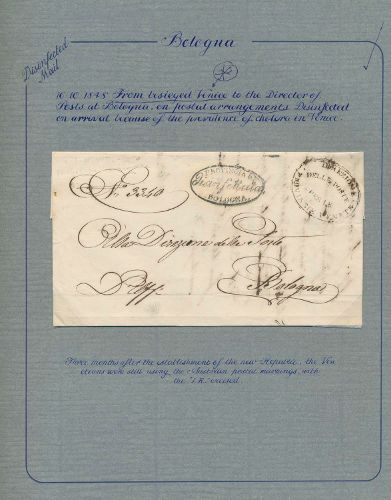 Bologna
Disinfected
Mail
10 10 1848 From besieged Venice to the Director of
Posts at Bologna, on postal arrangements Disinfected
on arrival because of the prevalence of cholera in Venice.
N. 3340
BOLOGNA
DELLE POSTE
Alla Direzione delle Poste
Bologna
Three months after the establishment of the new Republic, the Ven
etians were still using the Austrian postal markings, with
the "I.R." erased.